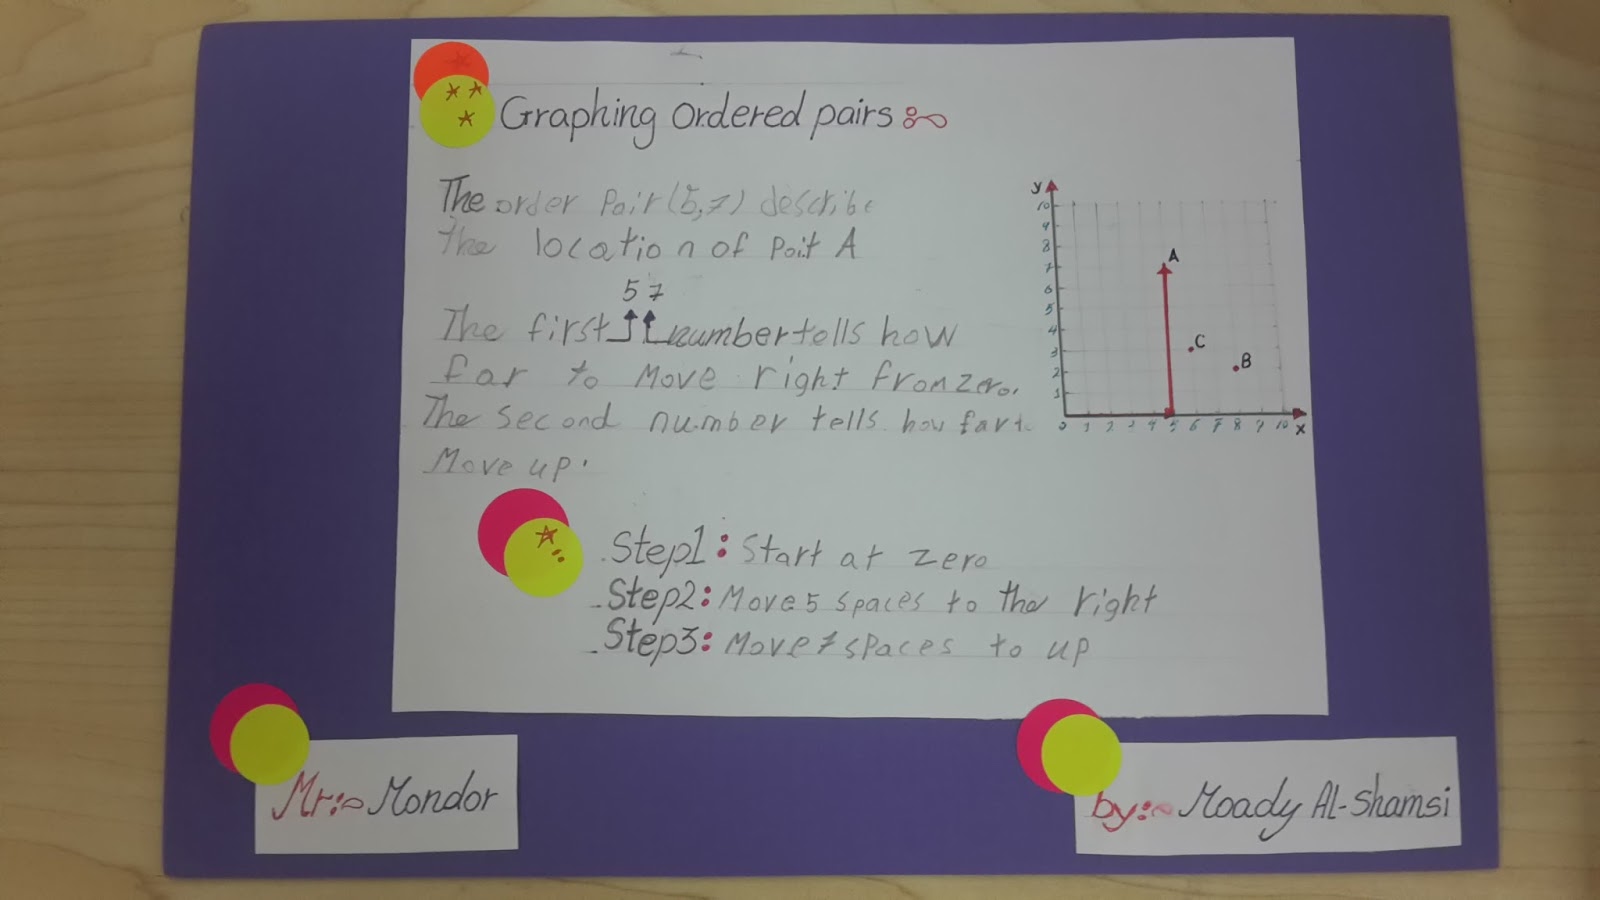 Graphing ordered pairs
The order Pair (5,7) describe
the location of Poit A
5 7
The first number tells how
far to Move right from zero.
The second number tells how far t
Move up.
Step1: Start at zero
Step2: Move 5 spaces to the right
Step3: Move 7 spaces to up
y
10
9
8
7
6
5
4
3
2
1
A
C
B
0 1 2 3 4 5 6 7 8 9 10 x
Mr: Mondor
by: Moady Al-Shamsi